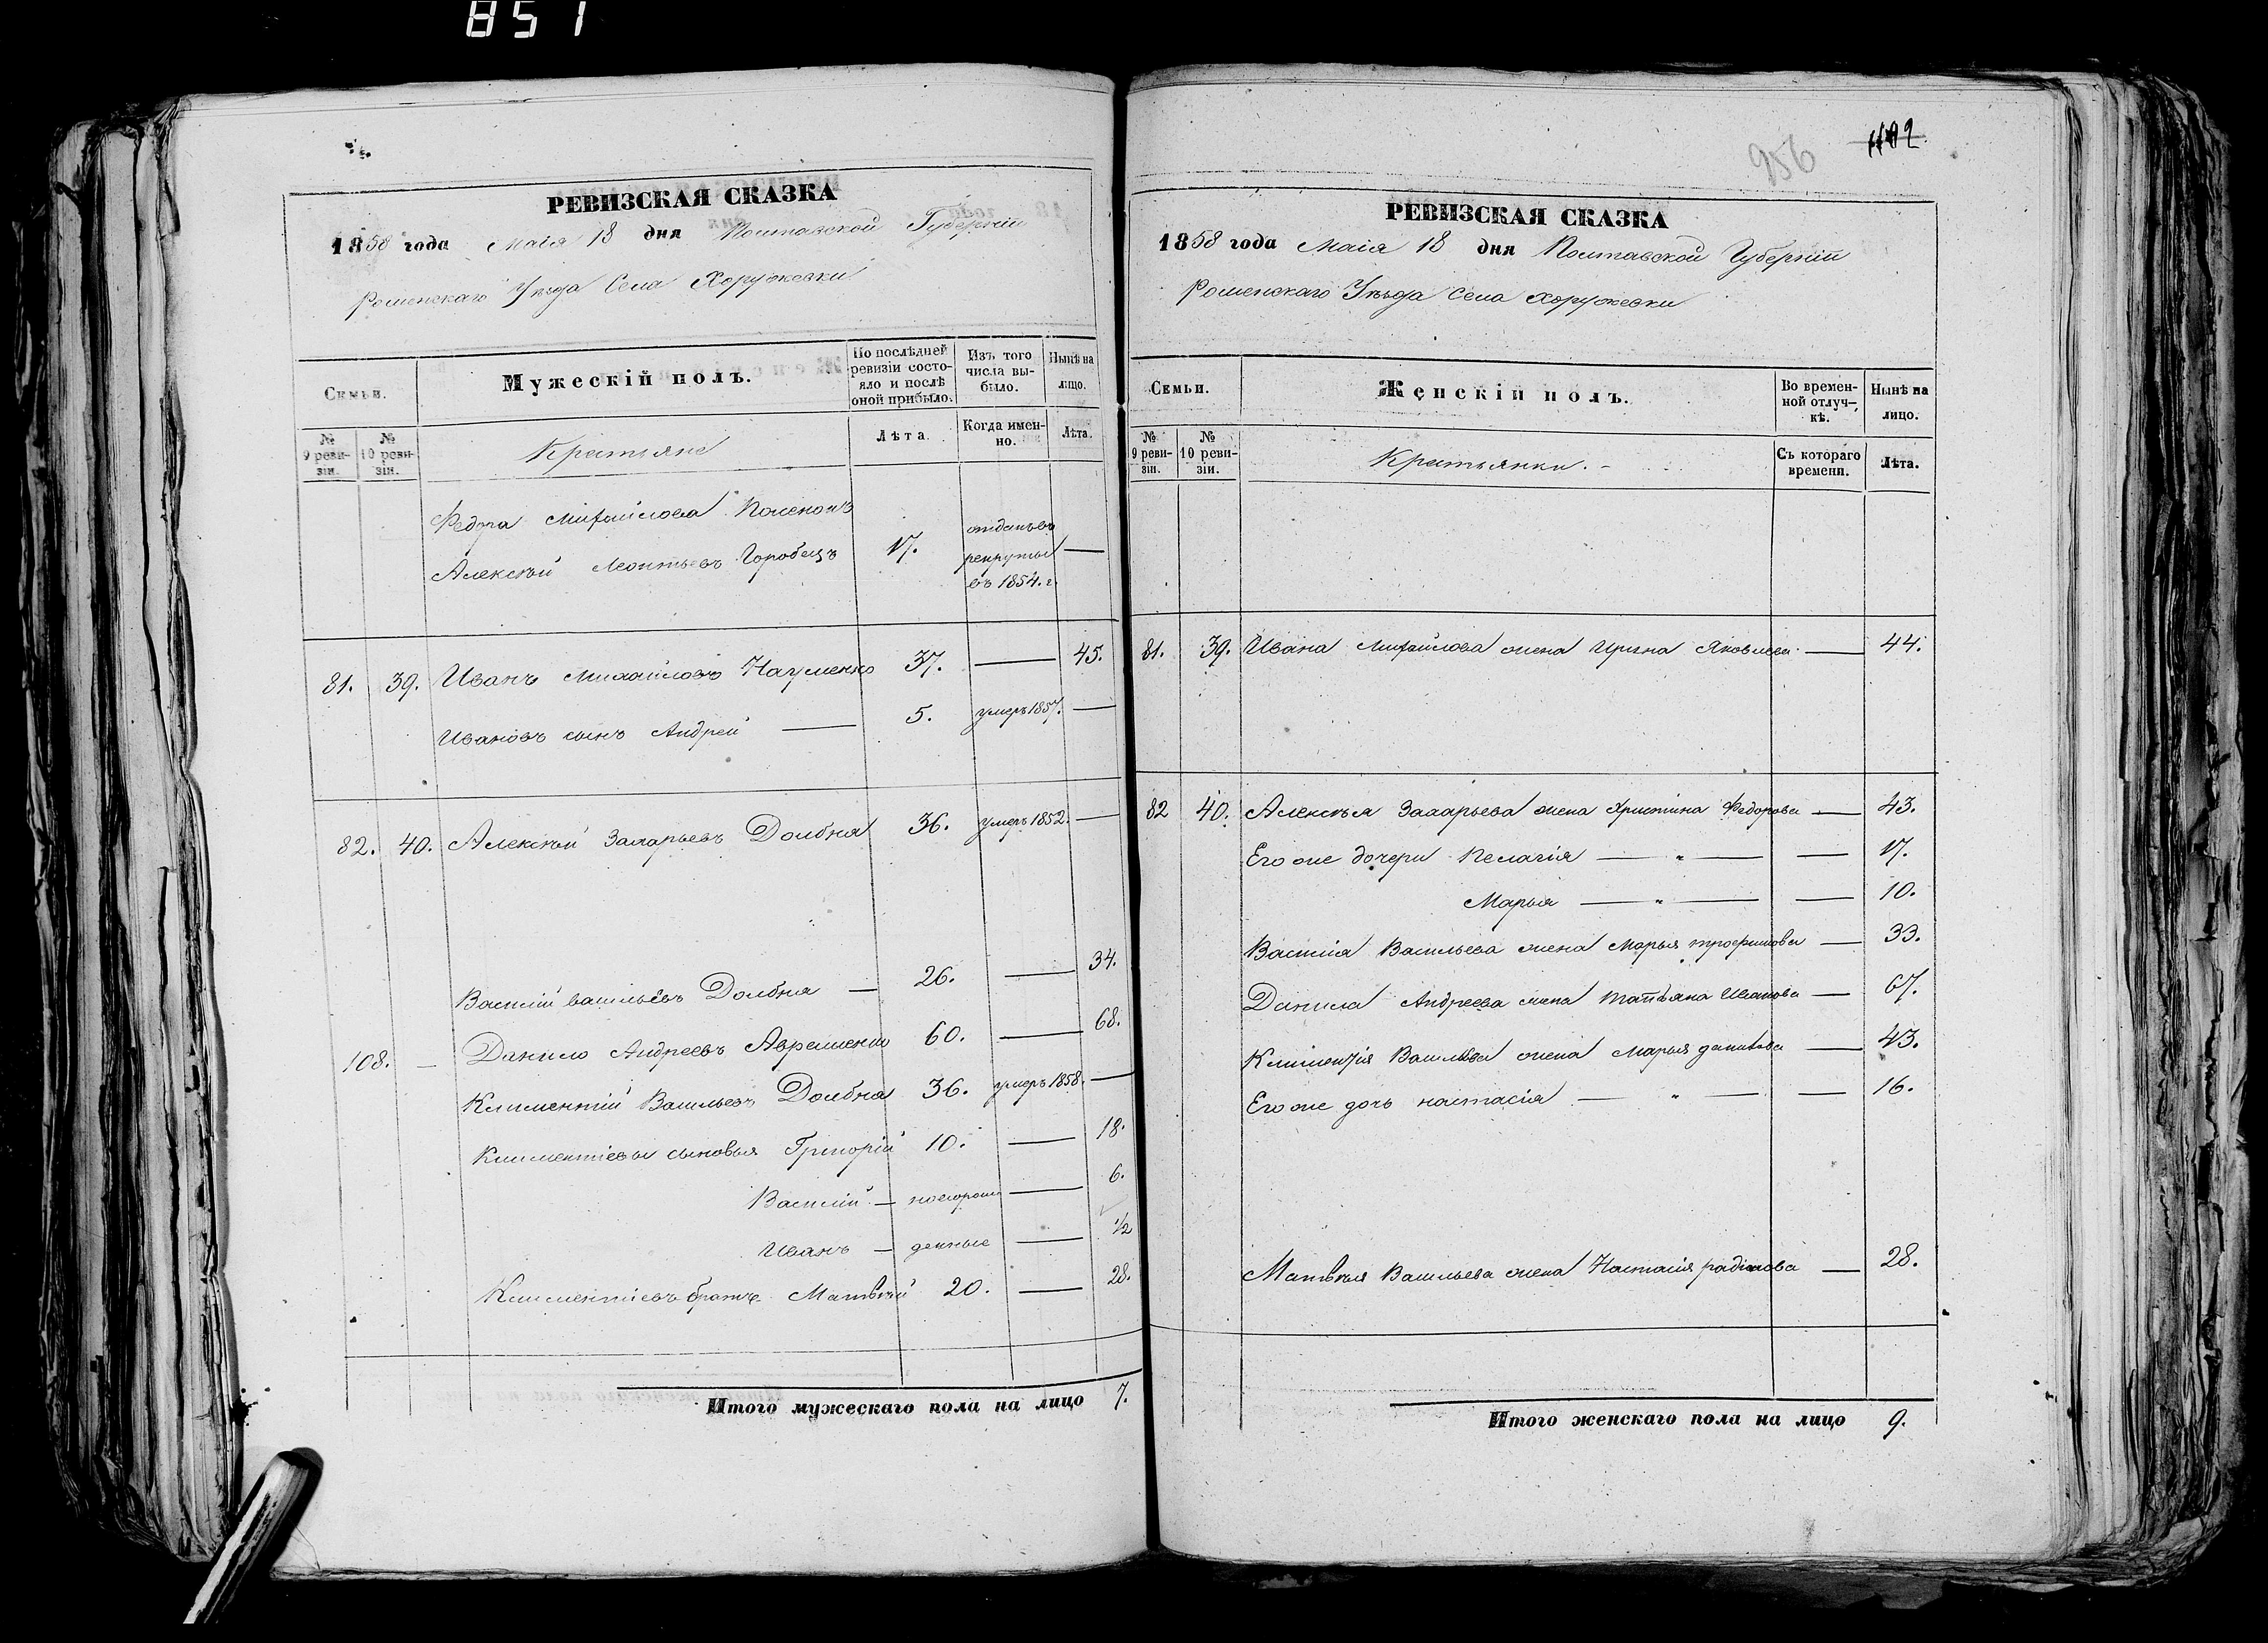 851
РЕВИЗСКАЯ СКАЗКА
1858 года Маія 18 дня Полтавской Губерніи
Роменскаго Уѣзда Села Хоружевки
Семьи.
Мужескій полъ.
По послѣдней ревизіи состояло и послѣ оной прибыло.
Изъ того числа выбыло.
Нынѣ на лицо.
№ 9 ревизіи.
№ 10 ревизіи.
Крестьяне
Лѣта.
Когда именно.
Лѣта.
Федора Михайлова
Алексѣй Леонтьевъ Горобецъ 17. отданъ въ рекруты въ 1854. г —
81. 39. Иванъ Михайловъ Науменко 37. — 45.
Ивановъ сынъ Андрей — 5. умеръ 1857. —
82. 40. Алексѣй Захарьевъ Долбня 36. умеръ 1852. —
Василій Васильевъ Долбня — 26. — 34.
108. — Данило Андреевъ Авраменко 60. — 68.
Климентій Васильевъ Долбня 36. умеръ 1858. —
Климентіевы сыновья Григорій 10. — 18.
Василій — послѣ рожденные — 6.
Иванъ — — 1/2
Климентіевъ братъ Матвѣй 20. — 28.
Итого мужескаго пола на лицо 7.
956
1102
РЕВИЗСКАЯ СКАЗКА
1858 года Маія 18 дня Полтавской Губерніи
Роменскаго Уѣзда Села Хоружевки
Семьи.
Женскій полъ.
Во временной отлучкѣ.
Нынѣ на лицо.
№ 9 ревизіи.
№ 10 ревизіи.
Крестьянки.
Съ котораго времени.
Лѣта.
81. 39. Ивана Михайлова жена Ирина Яковлева — 44.
82 40. Алексѣя Захарьева жена Христина Федорова — 43.
Его же дочери Пелагія — „ — — 17.
Марья — „ — — 10.
Василія Васильева жена Марья Трофимова — 33.
Данила Андреева жена Татьяна Иванова — 67.
Климентія Васильева жена Марья Данилова — 43.
Его же дочь Настасія — „ — — 16.
Матвѣя Васильева жена Настасія Радіонова — 28.
Итого женскаго пола на лицо 9.